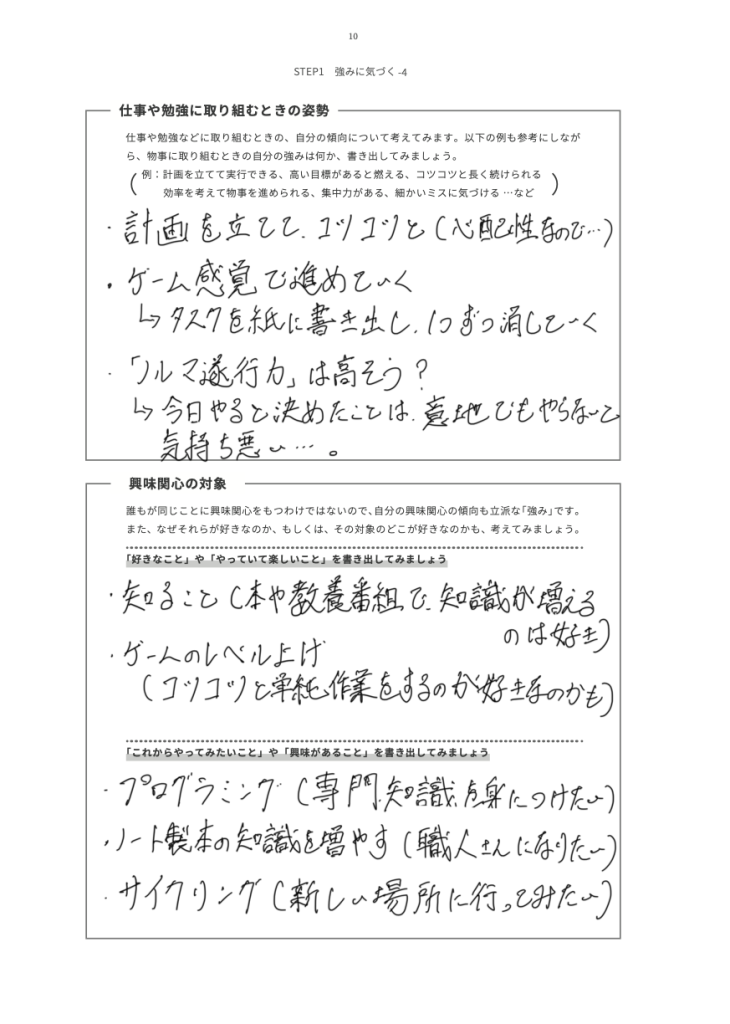 10
STEP1 強みに気づく -4
仕事や勉強に取り組むときの姿勢
仕事や勉強などに取り組むときの、自分の傾向について考えてみます。以下の例も参考にしなが
ら、物事に取り組むときの自分の強みは何か、書き出してみましょう。
(例：計画を立てて実行できる、高い目標があると燃える、コツコツと長く続けられる
効率を考えて物事を進められる、集中力がある、細かいミスに気づける …など)
・計画を立てて、コツコツと(心配性なので…)
・ゲーム感覚で進めていく
↳タスクを紙に書き出し、1つずつ消していく
・「ノルマ遂行力」は高そう？
↳今日やると決めたことは、意地でもやらないと
気持ち悪い…。
興味関心の対象
誰もが同じことに興味関心をもつわけではないので、自分の興味関心の傾向も立派な「強み」です。
また、なぜそれらが好きなのか、もしくは、その対象のどこが好きなのかも、考えてみましょう。
「好きなこと」や「やっていて楽しいこと」を書き出してみましょう
・知ること(本や教養番組で、知識が増える
のは好き)
・ゲームのレベル上げ
(コツコツと単純作業をするのが好きなのかも)
「これからやってみたいこと」や「興味があること」を書き出してみましょう
・プログラミング(専門知識、身につけたい)
・ノート製本の知識を増やす(職人さんになりたい)
・サイクリング(新しい場所に行ってみたい)